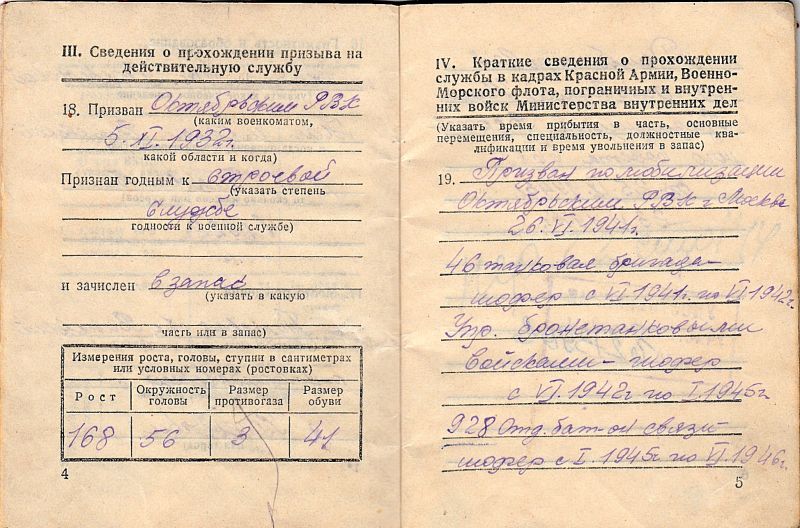 III. Сведения о прохождении призыва на
действительную службу
18. Призван Октябрьским РВК
(каким военкоматом,
5. XI. 1932г.
какой области и когда)
Признан годным к строевой
(указать степень
службе
годности к военной службе)
и зачислен в запас
(указать в какую
часть или в запас)
Измерения роста, головы, ступни в сантиметрах
или условных номерах (ростовках)
Рост Окружность головы Размер противогаза Размер обуви
168 56 3 41
4
IV. Краткие сведения о прохождении
службы в кадрах Красной Армии, Военно-
Морского флота, пограничных и внутрен-
них войск Министерства внутренних дел
(Указать время прибытия в часть, основные
перемещения, специальность, должностные ква-
лификации и время увольнения в запас)
19. Призван по мобилизации
Октябрьским РВК г. Москва
26. VI. 1941г.
46 танковая бригада-
шофер с VI. 1941г. по VI. 1942г.
Упр. бронетанковыми
войсками - шофер
с VI. 1942г по I. 1945г
928 Отд. бат-он связи
шофер с I. 1945г. по VI. 1946г.
5